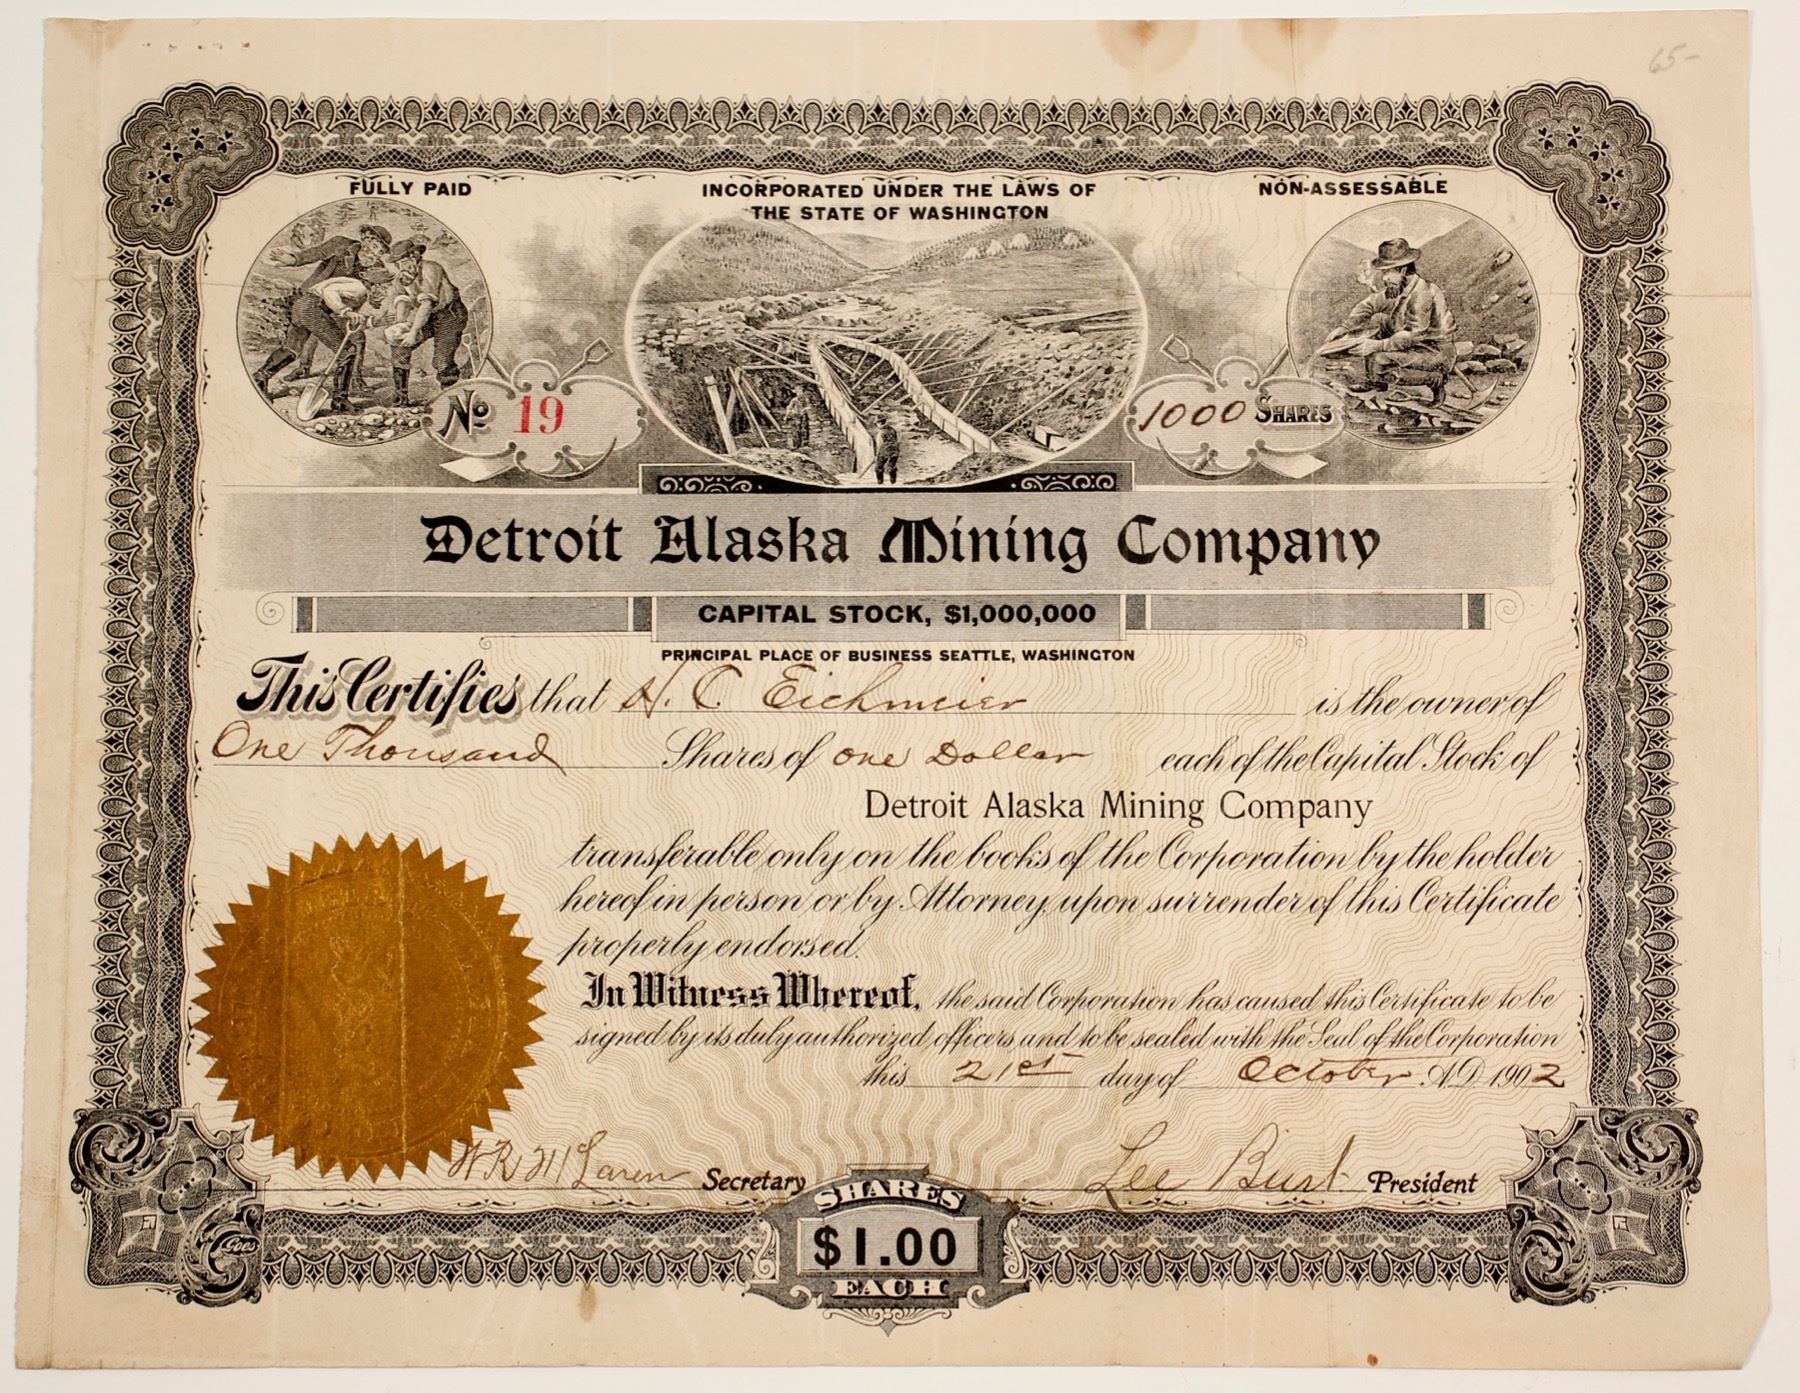 65-
FULLY PAID
INCORPORATED UNDER THE LAWS OF
THE STATE OF WASHINGTON
NON-ASSESSABLE
No 19
1000 SHARES
Detroit Alaska Mining Company
CAPITAL STOCK, $1,000,000
PRINCIPAL PLACE OF BUSINESS SEATTLE, WASHINGTON
This Certifies that H. C. Eichmeier is the owner of
One Thousand Shares of one Dollar each of the Capital Stock of
Detroit Alaska Mining Company
transferable only on the books of the Corporation by the holder
hereof in person or by Attorney, upon surrender of this Certificate
properly endorsed.
In Witness Whereof, the said Corporation has caused this Certificate to be
signed by its duly authorized officers and to be sealed with the Seal of the Corporation
this 21st day of October A.D. 1902
W R McLaren Secretary
Lee Burt President
SHARES
$1.00
EACH
Goes